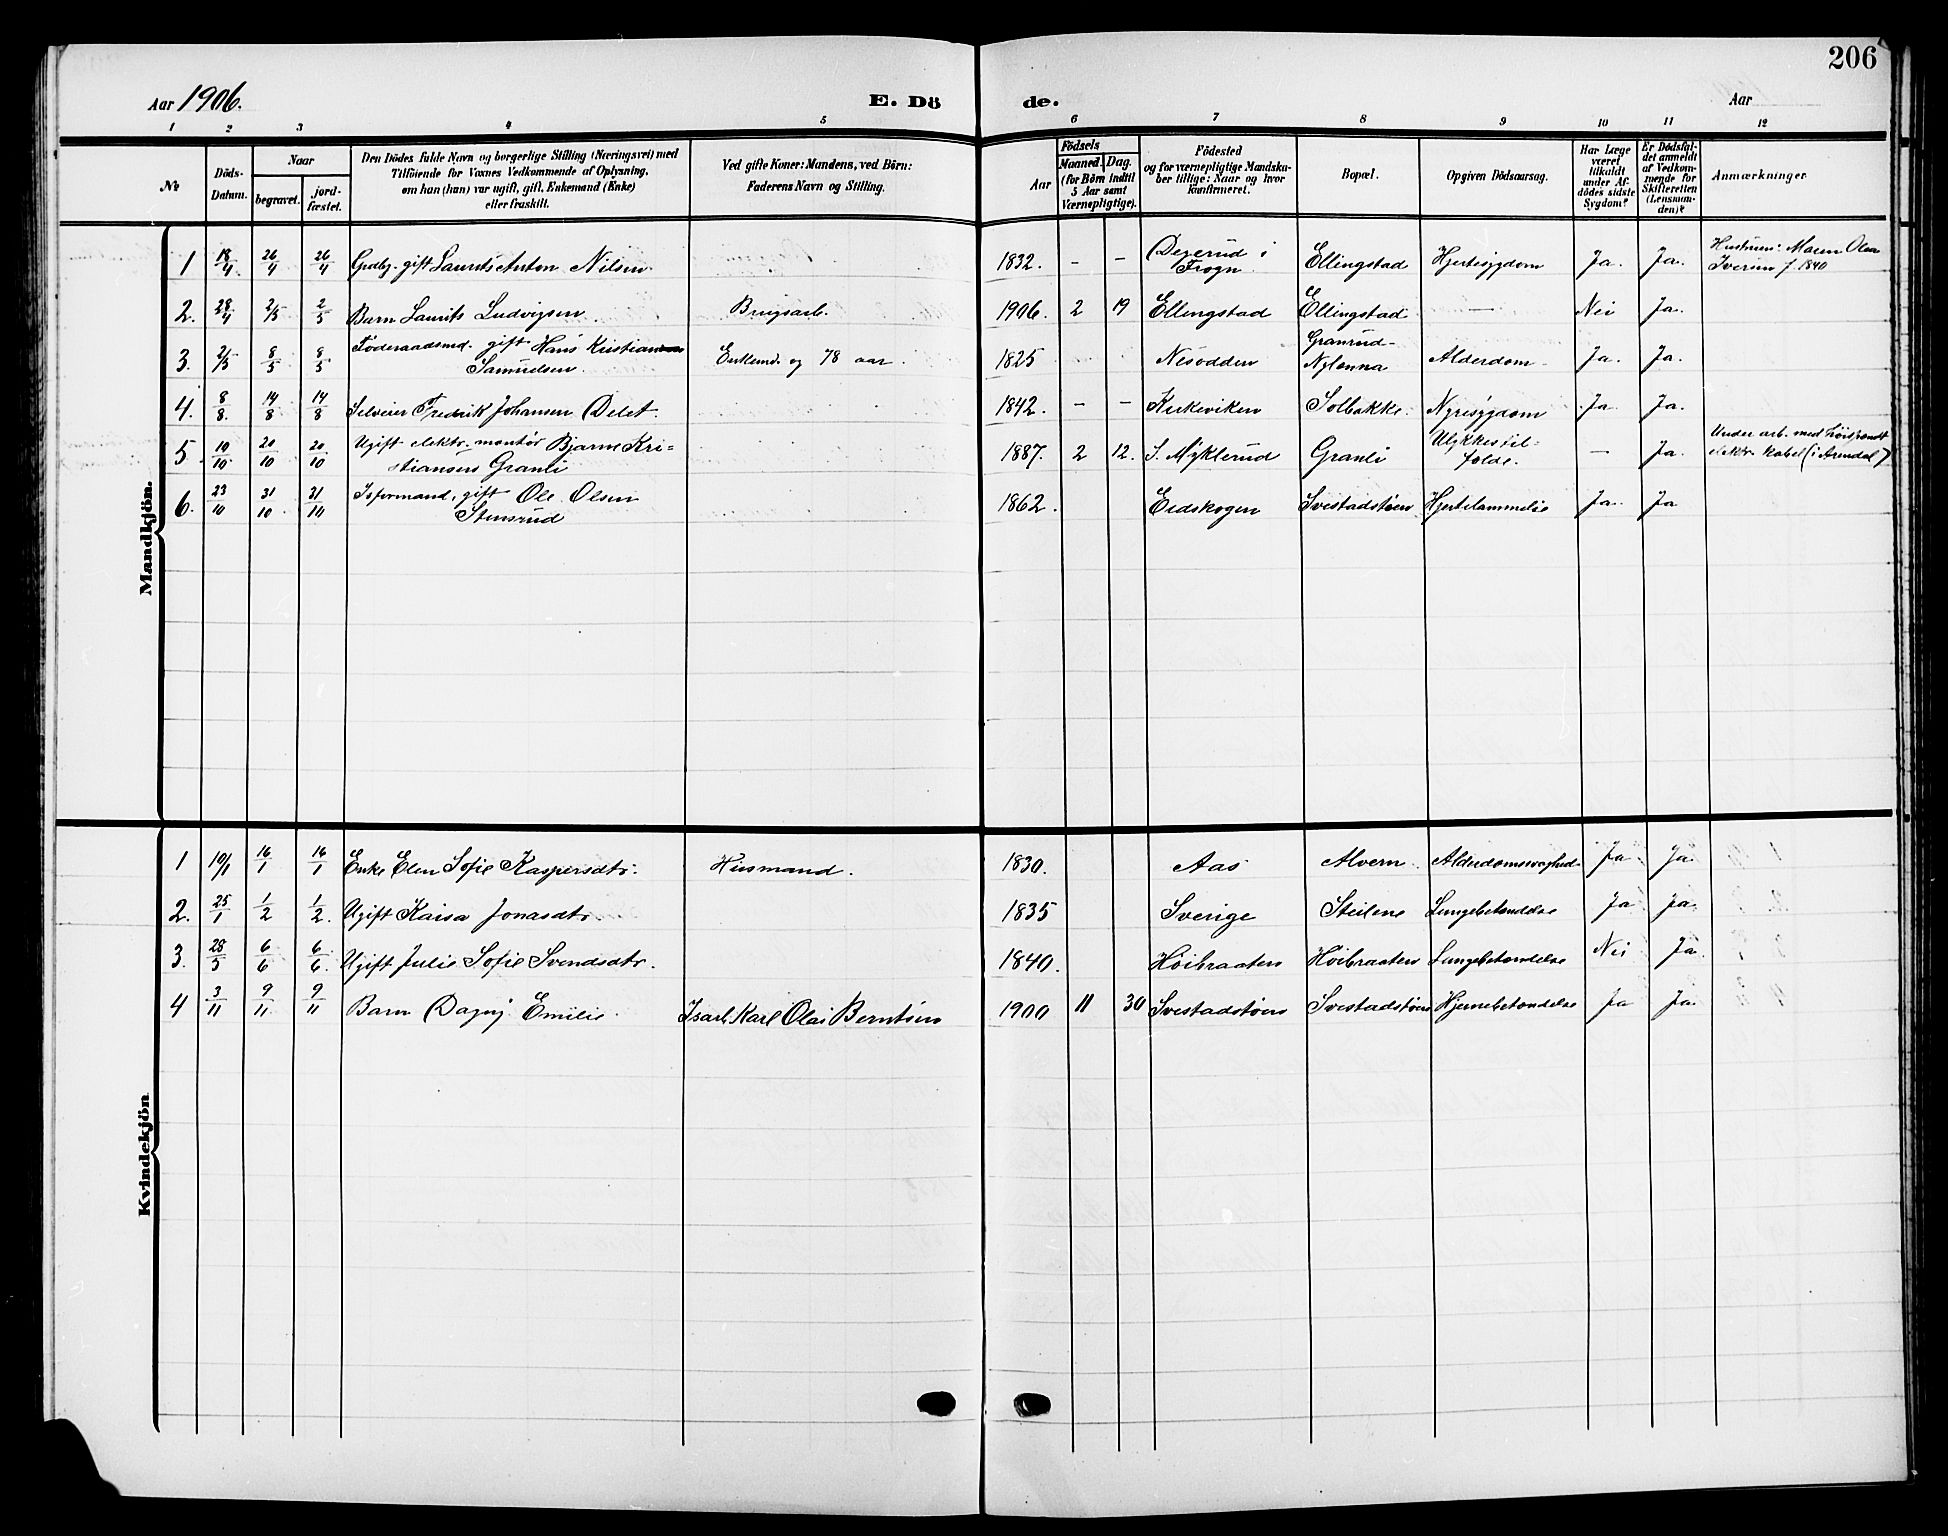 206
Aar 1906.
E. Dö
de.
Aar
1 2 3 4 5 6 7 8 9 10 11 12
No
Döds-
Datum.
Naar
begravet.
jord-
fæstet.
Den Dödes fulde Navn og borgerlige Stilling (Næringsvei) med
Tilföiende for Voxnes Vedkommende af Oplysning,
om han (hun) var ugift, gift, Enkemand (Enke)
eller fraskilt.
Ved gifte Koner: Mandens, ved Börn:
Faderens Navn og Stilling.
Födsels
Aar
Maaned. Dag.
(for Börn indtil
5 Aar samt
Værnepligtige).
Födested
og for værnepligtige Mandska-
ber tillige: Naar og hvor
konfirmeret.
Bopæl.
Opgiven Dödsaarsag.
Har Læge
været
tilkaldt
under Af-
dödes sidste
Sygdom?
Er Dödsfal-
det anmeldt
af Vedkom-
mende for
Skifteretten
(Lensman-
den)?
Anmærkninger
Mandkjön.
1 18/4 26/4 26/4 Grdbr. gift Laurits Anton Nilsen 1832. - - Degerud i Frogn Ellingstad Hjertesygdom Ja. Ja. Hustruen: Maren Olea
Iversen f. 1840
2. 28/4 2/5 2/5 Barn Laurits Ludvigsen Brugsarb. 1906. 2 19 Ellingstad Ellingstad — Nei Ja.
3. 2/5 8/5 8/5 Föderaadsmd. gift Hans Kristiansen
Samuelsen Enkemd. og 78 aar. 1825 Nesodden Granrud-
Nylenna Alderdom Ja. Ja.
4. 8/8. 14/8 14/8 Selveier Fredrik Johansen Delet. 1842. - - Kirkeviken Solbakke. Nyresygdom Ja. Ja.
5 10/10 20/10 20/10 Ugift elektr. montør Bjarne Kri-
stiansen Granli 1887. 2 12. S. Myklerud Granli Ulykkestil-
fælde. — Ja. Under arb. med høispændt
elektr. kabel (i Arendal)
6. 23/10 31/10 31/10 Isformand, gift Ole Olsen
Stensrud 1862. Eidskogen Svestadstøen Hjertelammelse Ja. Ja
Kvindekjön
1 10/1 16/1 16/1 Enke Elen Sofie Kaspersdtr. Husmand. 1830. Aas Alvern Alderdomssvaghed Ja Ja.
2. 25/1 1/2 1/2. Ugift Kaisa Jonasdtr. 1835 Sverige Steilene Lungebetændelse Ja Ja.
3. 28/5 6/6 6/6. Ugift Julie Sofie Svendsdtr. 1840. Høibraaten Høibraaten Lungebetændelse Nei Ja.
4 3/11 9/11 9/11 Barn Dagny Emilie. Isarb. Karl Olai Berntsen 1900 11 30 Svestadstøen Svestadstøen Hjernebetændelse Ja Ja.